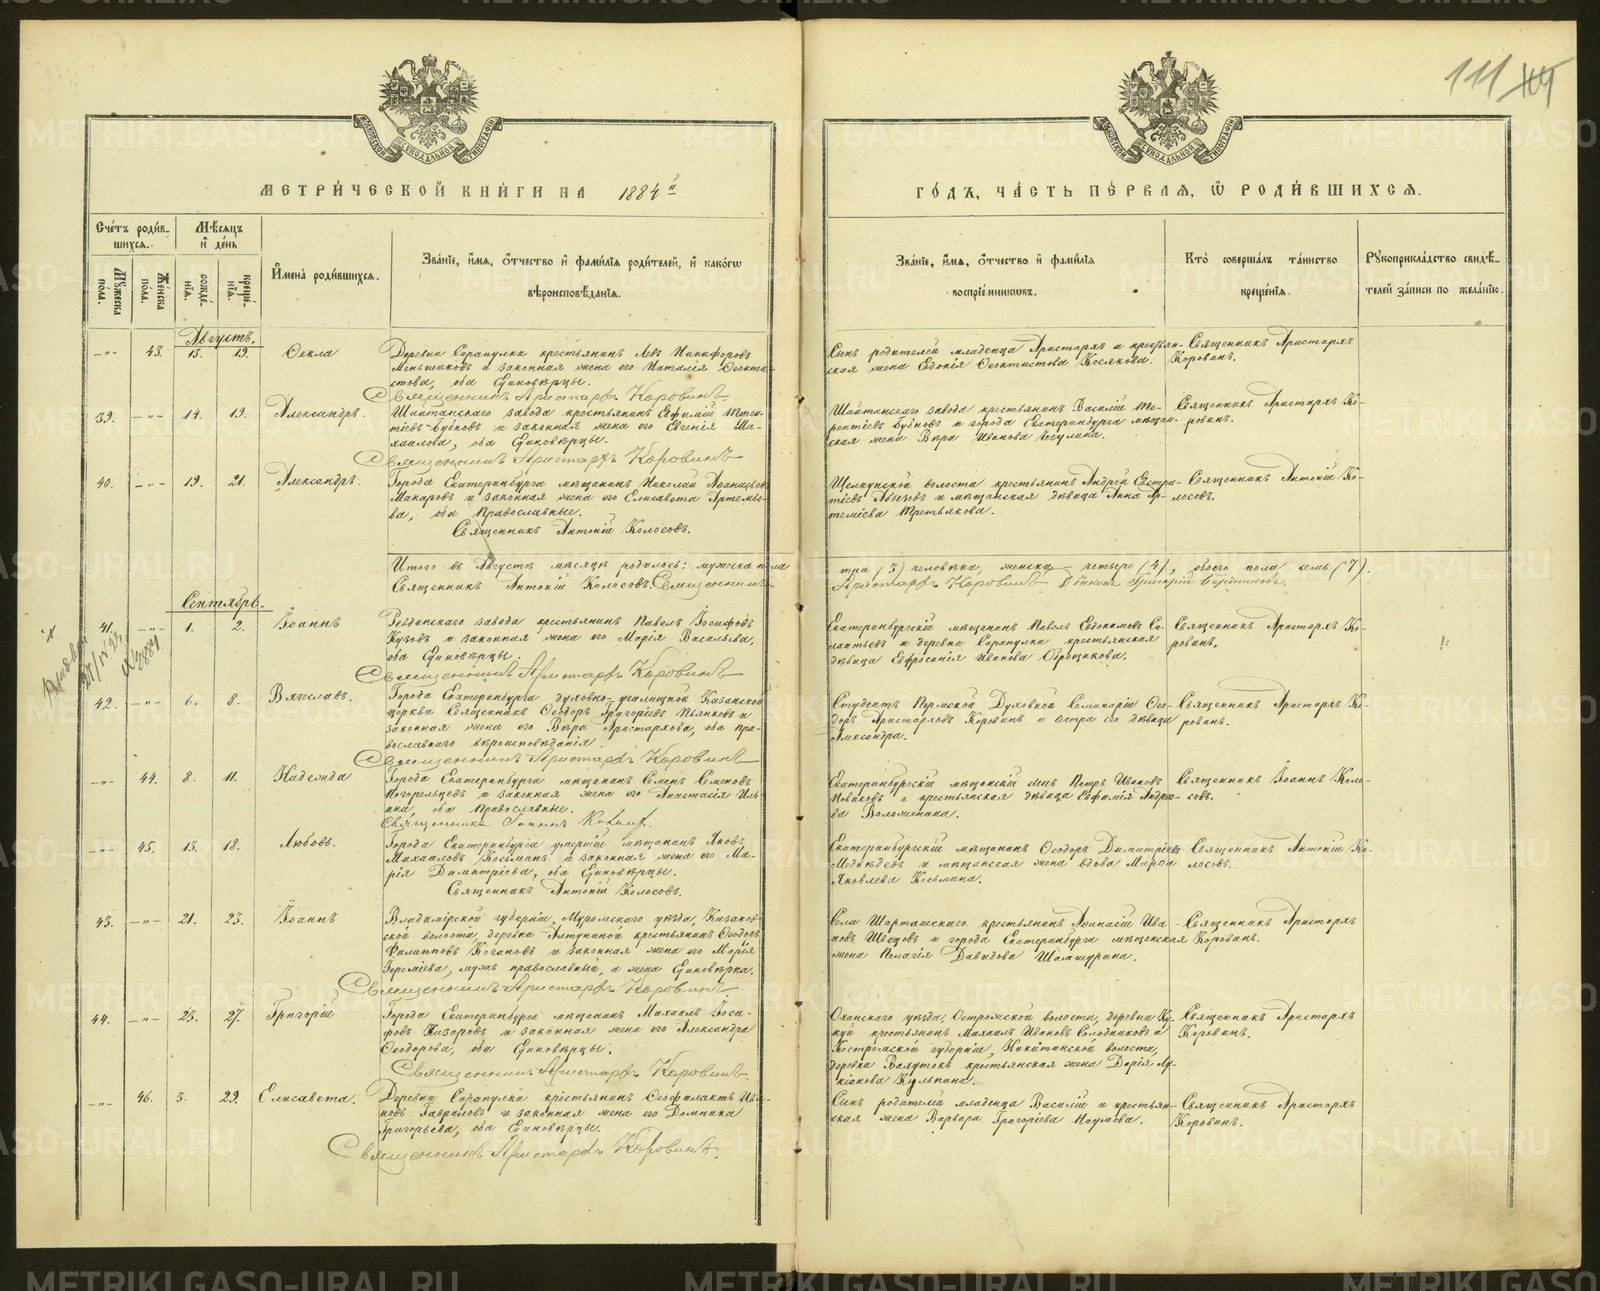 111
МЕТРИ́ЧЕСКОЙ КНИ́ГИ НА 1884й
ГО́ДЪ, ЧА́СТЬ ПЕ́РВАѦ, Ѿ РОДИ́ВШИХСѦ.
Сче́тъ роди́в-
шихся.
Мѣ́сяцъ
и҆ де́нь
Мꙋжеска по́ла.
Же́нска по́ла.
рожде́нїѧ.
креще́нїѧ.
И҆мена̀ роди́вшихся.
Зва́нїе, и҆́мѧ, ѻ҆́тчество и҆ фамилїѧ роди́телей, и҆ како́гѡ
вѣроисповѣ́данїѧ.
Зва́нїе, и҆́мѧ, ѻ҆́тчество и҆ фамилїѧ
воспрїе́мникѡвъ.
Кто̀ соверша́лъ та́инство
креще́нїѧ.
Рꙋкоприкла́дство свидѣ́-
телей за́писи по жела́нїю.
Августъ.
—"— 43. 15. 19. Ѳекла
Деревни Сарапулки крестьянинъ Левъ Никифоровъ
Меньшиковъ и законная жена его Наталія Ѳеокти-
стова, оба Единовѣрцы.
Священникъ Аристархъ Коровинъ
Сынъ родителей младенца Аристархъ и крестьян-
ская жена Евдокія Ѳеоктистова Косякова.
Священникъ Аристархъ
Коровинъ.
39. —"— 14. 19. Александръ.
Шайтанскаго завода крестьянинъ Ефимій Терен-
тіевъ Бубновъ и законная жена его Евгенія Ми-
хайлова, оба Единовѣрцы.
Священникъ Аристархъ Коровинъ
Шайтанскаго завода крестьянинъ Василій Те-
рентіевъ Бубновъ и города Екатеринбурга мѣщан-
ская жена Вѣра Иванова
Священникъ Аристархъ Ко-
ровинъ.
40. —"— 19. 21. Александръ.
Города Екатеринбурга мѣщанинъ Николай Аѳанасьевъ
Макаровъ и законная жена его Елисавета Артемье-
ва, оба Православные.
Священникъ Антоній Колосовъ.
Щелкунской волости крестьянинъ Андрей Евстра-
тіевъ и мѣщанская дѣвица Анна Ар-
теміева Третьякова.
Священникъ Антоній Ко-
лосовъ.
Итого въ Августѣ мѣсяцѣ родилось: мужска пола
три (3) человѣка, женска четыре (4), обоего пола семь (7).
Священникъ Антоній Колосовъ. Священникъ
Аристархъ Коровинъ Діаконъ Григорій
Сентябрь.
41. —"— 1. 2. Іоаннъ
Ревдинскаго завода крестьянинъ Павелъ Іосифовъ
Кузовъ и законная жена его Марія Васильева,
оба Единовѣрцы.
Священникъ Аристархъ Коровинъ
Екатеринбургскій мѣщанинъ Павелъ Евдокимовъ Си-
лантьевъ и деревни Сарапулки крестьянская
дѣвица Евфросинія Иванова Оброщикова.
Священникъ Аристархъ Ко-
ровинъ.
42. —"— 6. 8. Вячеславъ.
Города Екатеринбурга духовно-училищной Казанской
церкви Священникъ Ѳеодоръ Григоріевъ Пьянковъ и
законная жена его Вѣра Аристархова, оба пра-
вославнаго вѣроисповѣданія.
Священникъ Аристархъ Коровинъ
Студентъ Пермской Духовной Семинаріи Ѳео-
доръ Аристарховъ Коровинъ и сестра его дѣвица
Александра.
Священникъ Аристархъ Ко-
ровинъ.
—"— 44. 8. 11. Надежда
Города Екатеринбурга мѣщанинъ Семенъ Семеновъ
Погорельцевъ и законная жена его Анастасія Иль-
ина, оба Православные.
Священникъ Іоаннъ
Екатеринбургскій мѣщанскій сынъ Петръ Ивановъ
Новиковъ и крестьянская дѣвица Евфимія Андрее-
ва
Священникъ Іоаннъ Коло-
совъ.
—"— 45. 15. 18. Любовь.
Города Екатеринбурга умершій мѣщанинъ Яковъ
Михайловъ Косьминъ и законная жена его Ма-
рія Димитріева, оба Единовѣрцы.
Священникъ Антоній Колосовъ.
Екатеринбургскій мѣщанинъ Ѳеодоръ Димитріевъ
Медвѣдевъ и мѣщанская жена вдова Марѳа
Яковлева Косьмина.
Священникъ Антоній Ко-
лосовъ.
43. —"— 21. 23. Іоаннъ
Владимірской губерніи, Муромскаго уѣзда, Казаков-
ской волости, деревни Алтуниной крестьянинъ Ѳеодоръ
Филипповъ Кочановъ и законная жена его Марія
Іереміева, мужъ православный, а жена Единовѣрка.
Священникъ Аристархъ Коровинъ
Села Шарташскаго крестьянинъ Аѳанасій Ива-
новъ Швецовъ и города Екатеринбурга мѣщанская
жена Пелагія Давыдова Шаламурина.
Священникъ Аристархъ
Коровинъ.
44. —"— 25. 27. Григорій
Города Екатеринбурга мѣщанинъ Михаилъ Іоси-
фовъ Назаровъ и законная жена его Александра
Ѳеодорова, оба Единовѣрцы.
Священникъ Аристархъ Коровинъ
Оханскаго уѣзда, Острожской волости, деревни
крестьянинъ Михаилъ Ивановъ Солодниковъ и
Костромской губерніи, Никитинской волости,
деревни крестьянская жена Дарія Лу-
кіанова Кульпина.
Священникъ Аристархъ
Коровинъ.
—"— 46. 5. 29. Елисавета.
Деревни Сарапулки крестьянинъ Ѳеофилактъ Ива-
новъ Гавриловъ и законная жена его Домника
Григорьева, оба Единовѣрцы.
Священникъ Аристархъ Коровинъ.
Сынъ родителей младенца Василій и крестьян-
ская жена Варвара Григоріева Наумова.
Священникъ Аристархъ
Коровинъ.
METRIKI.GASO-URAL.RU